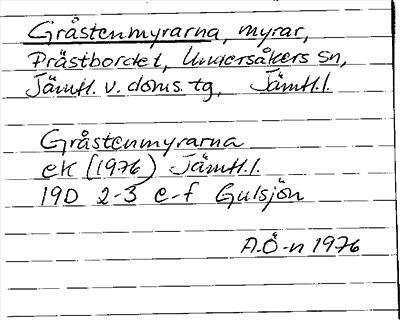 Gråstenmyrarna, myrar,
Prästbordet, Undersåkers sn,
Jämtl. v. doms. tg, Jämtl.l.
Gråstenmyrarna
ek (1976) Jämtl.l.
19D 2-3 e-f Gulsjön
A.Ö-n 1976